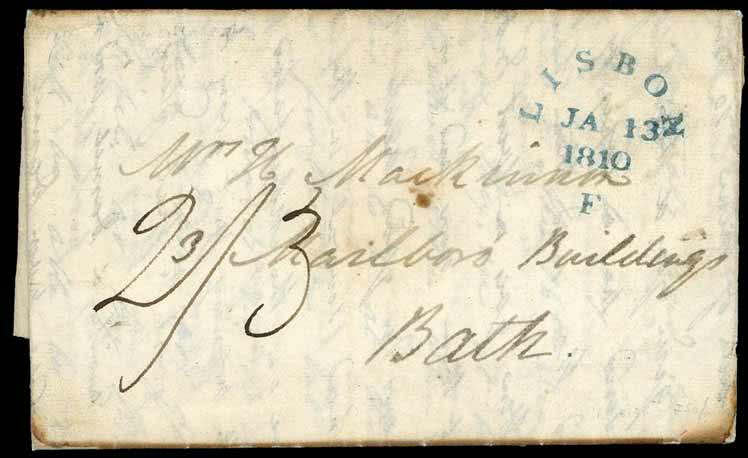 LISBON
JA 13
1810
F
Mrs H Mackinnon
2/3
3 Marlboro' Buildings
Bath.